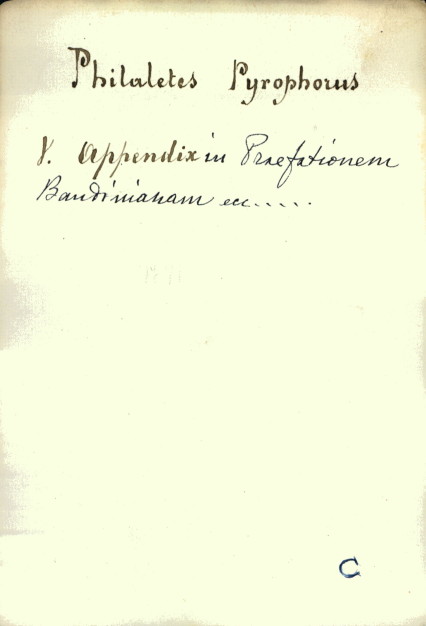 Philaletes Pyrophorus
V. Appendix in Praefationem
Bandinianam ecc.....
C